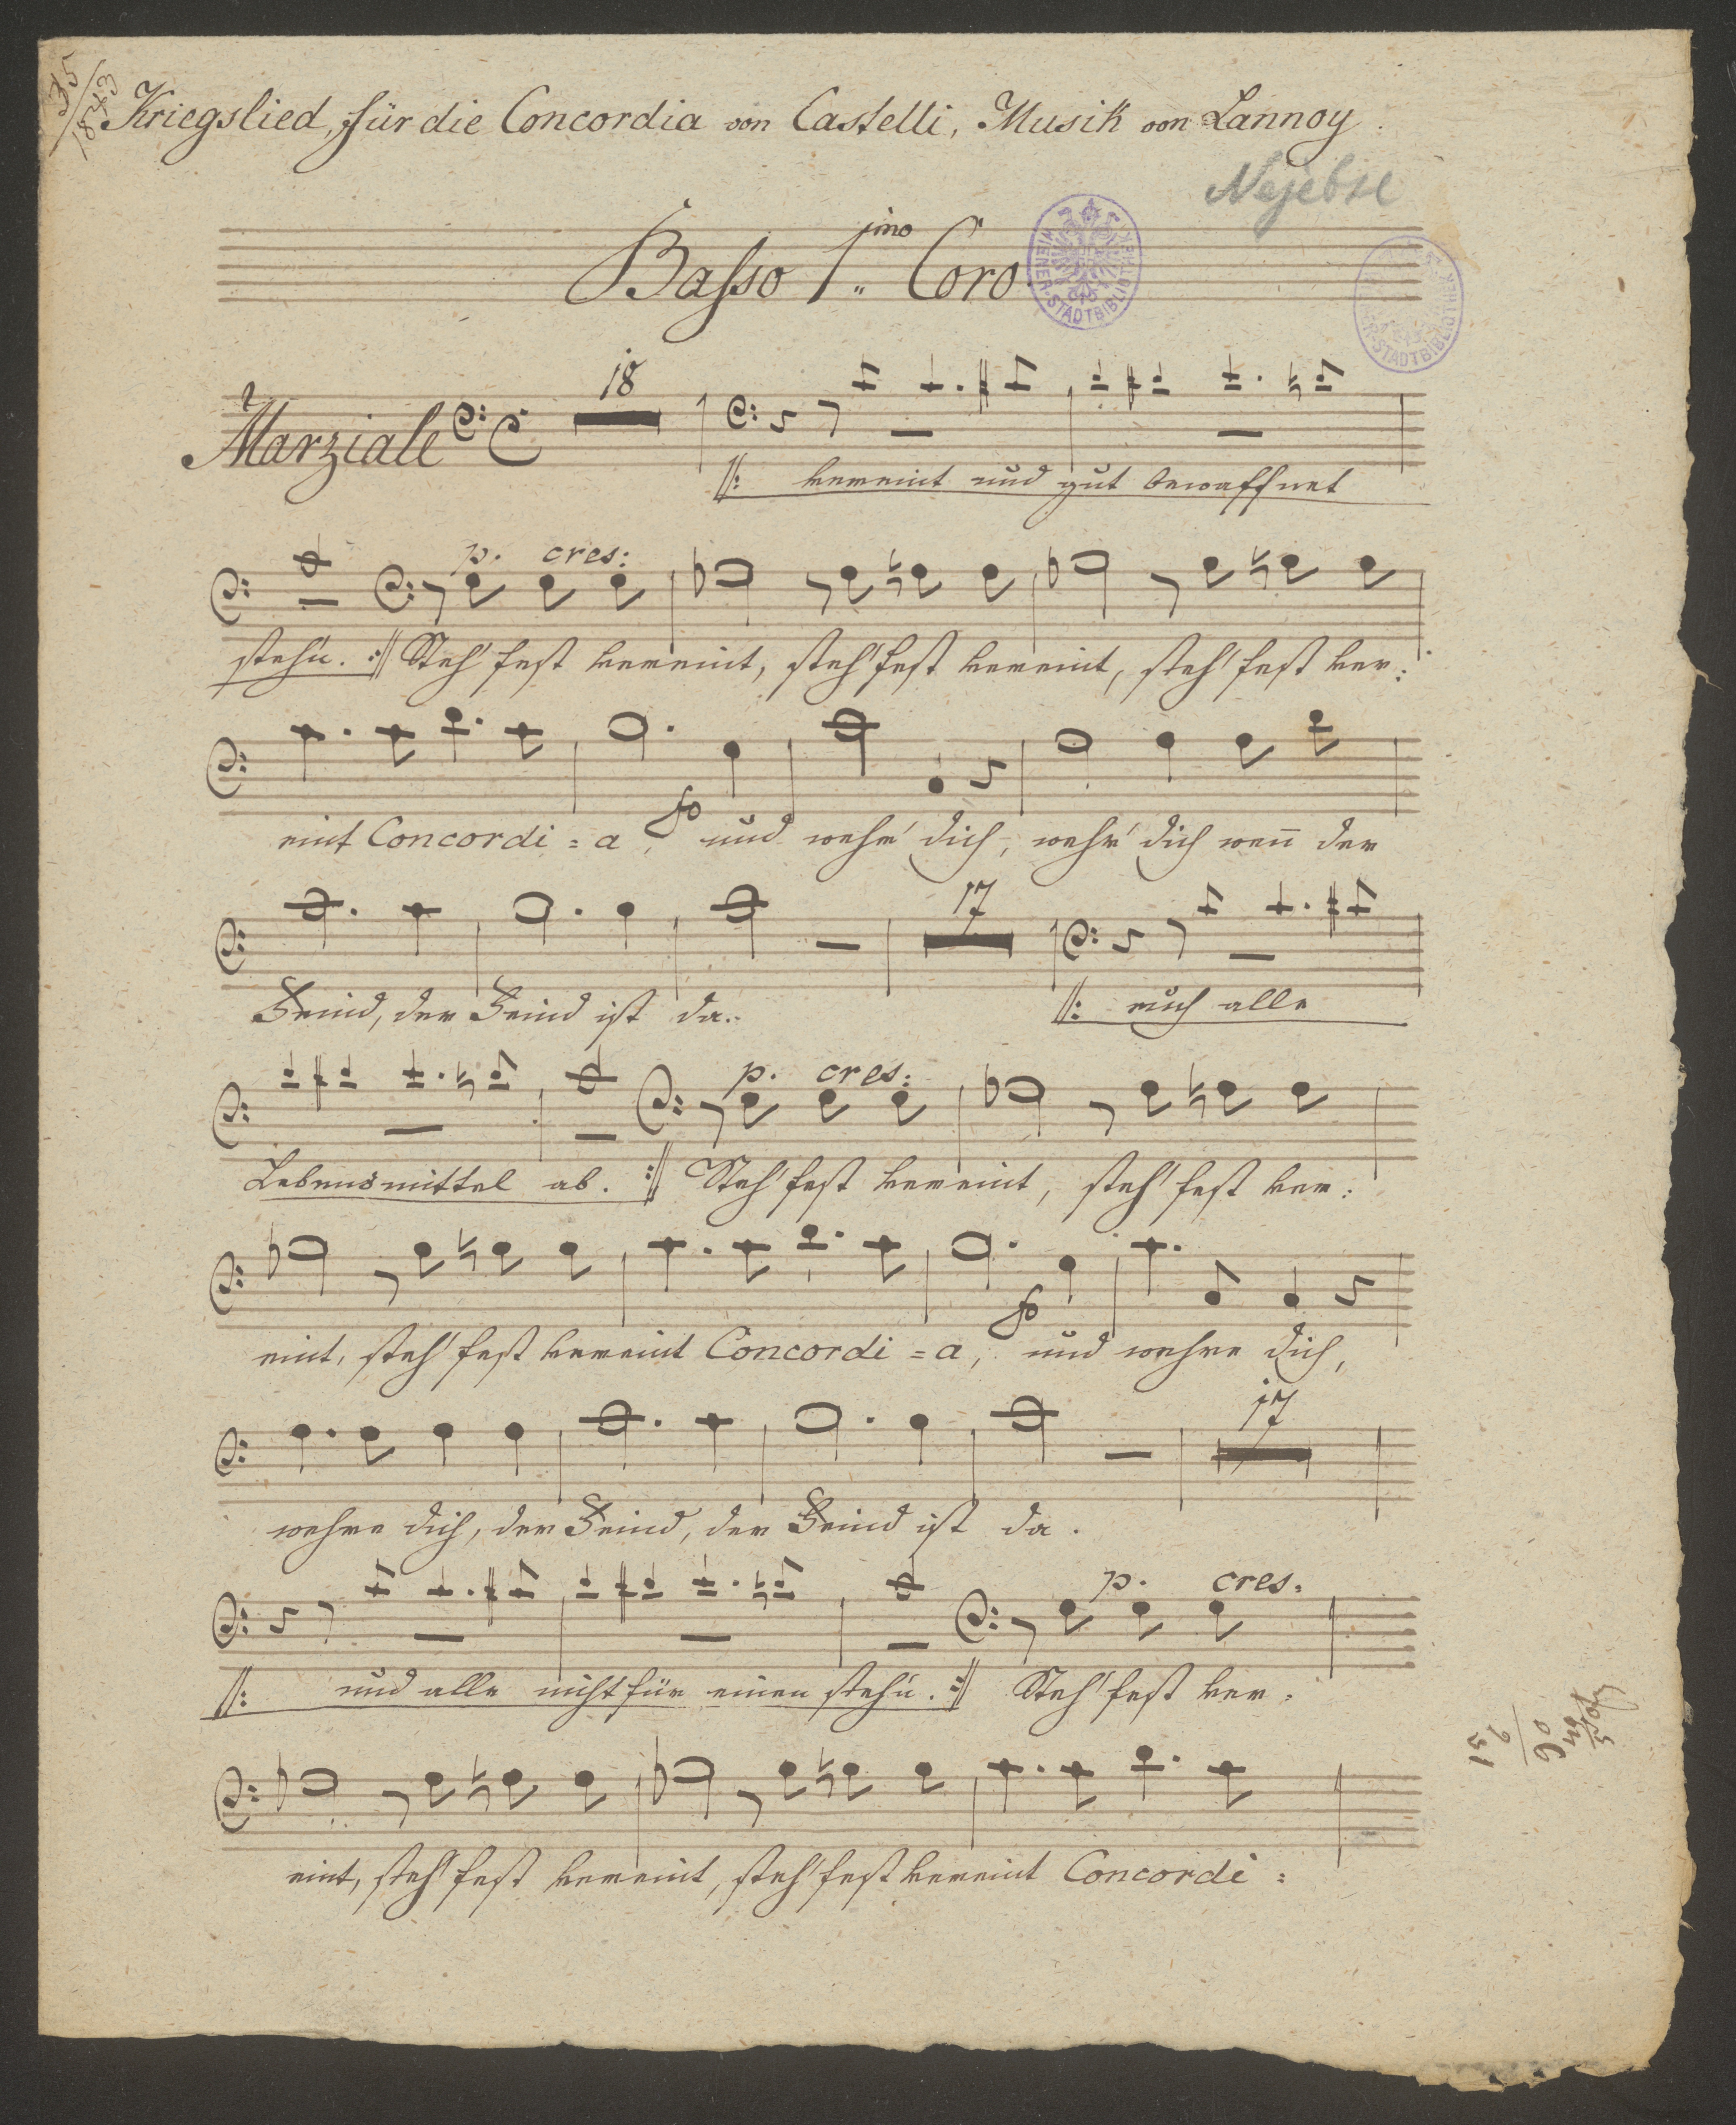 35/1843
Kriegslied, für die Concordia von Castelli, Musik von Lannoy.
Nejebse
Basso 1.mo Coro
WIENER-STADTBIBLIOTHEK
STADTBIBLIOTHEK
Marziale
18
//: vereint und gut bewaffnet
p. cres:
steh'n. :// Steh' fest vereint, steh' fest vereint, steh' fest ver:
fo
eint Concordi = a, und wehr' dich, wehr' dich wen̄ der
17
Feind, der Feind ist da.
//: euch alle
p. cres:
Lebensmittel ab. :// Steh' fest vereint, steh' fest ver:
fo
eint, steh' fest vereint Concordi = a, und wehre dich,
17
wehre dich, der Feind, der Feind ist da.
p. cres:
//: und alle nicht für einen steh'n. :// Steh' fest ver:
eint, steh' fest vereint, steh' fest vereint Concordi: